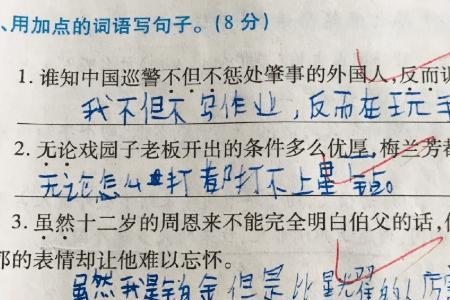 、用加点的词语写句子。(8分)
1. 谁知中国巡警不但不惩处肇事的外国人,反而训
我不但不写作业,反而在玩手
2. 无论戏园子老板开出的条件多么优厚,梅兰芳都
无论怎么打都打不上星钻。
3. 虽然十二岁的周恩来不能完全明白伯父的话,但
那的表情却让他难以忘怀。
虽然我是铂金但是比星耀的人厉